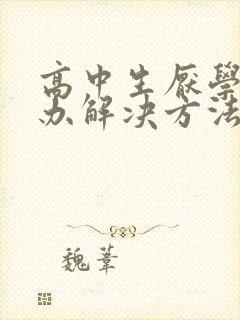 高中生厌學
办解决方法
魏葦